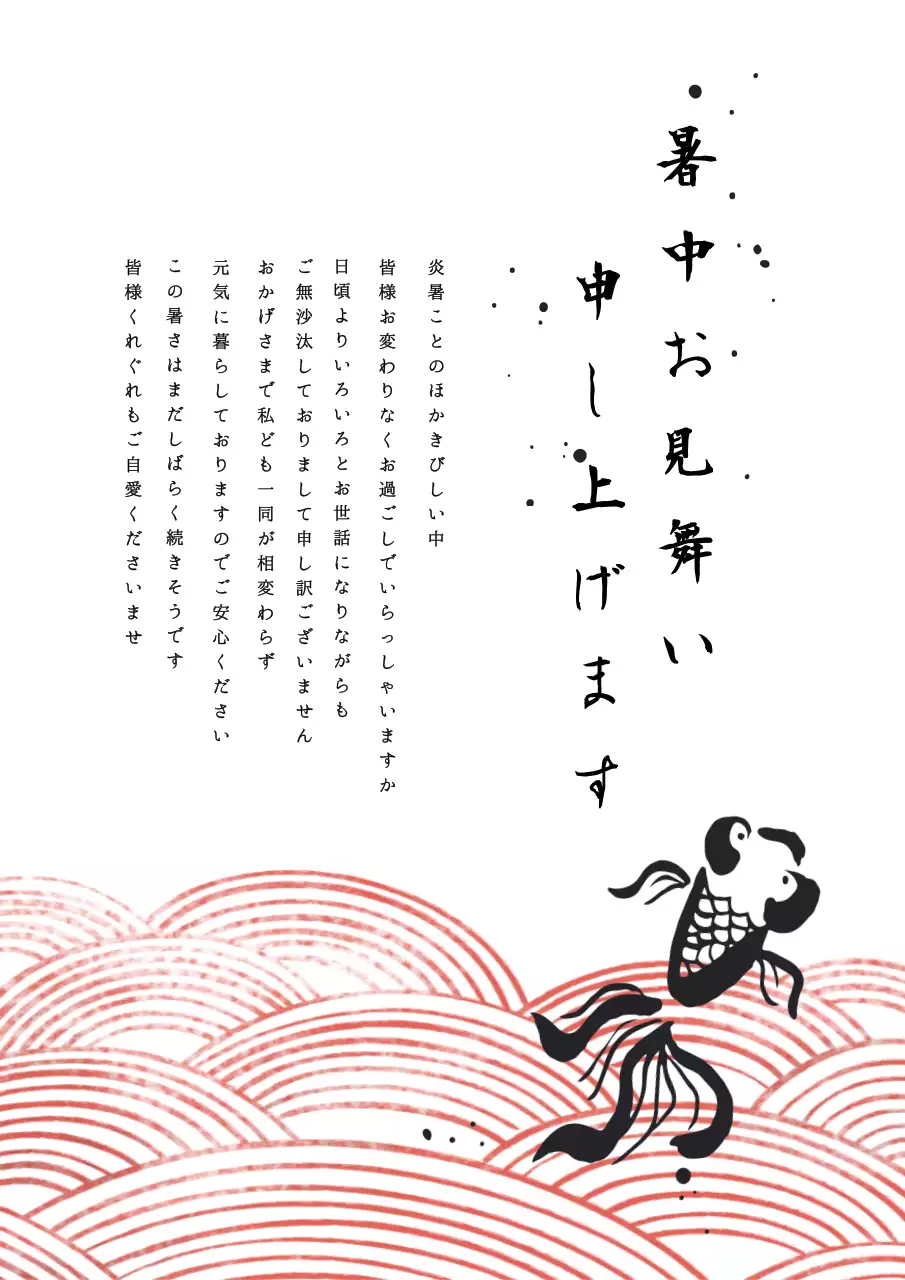 暑中お見舞い
申し上げます
炎暑ことのほかきびしい中
皆様お変わりなくお過ごしでいらっしゃいますか
日頃よりいろいろとお世話になりながらも
ご無沙汰しておりまして申し訳ございません
おかげさまで私ども一同が相変わらず
元気に暮らしておりますのでご安心ください
この暑さはまだしばらく続きそうです
皆様くれぐれもご自愛くださいませ